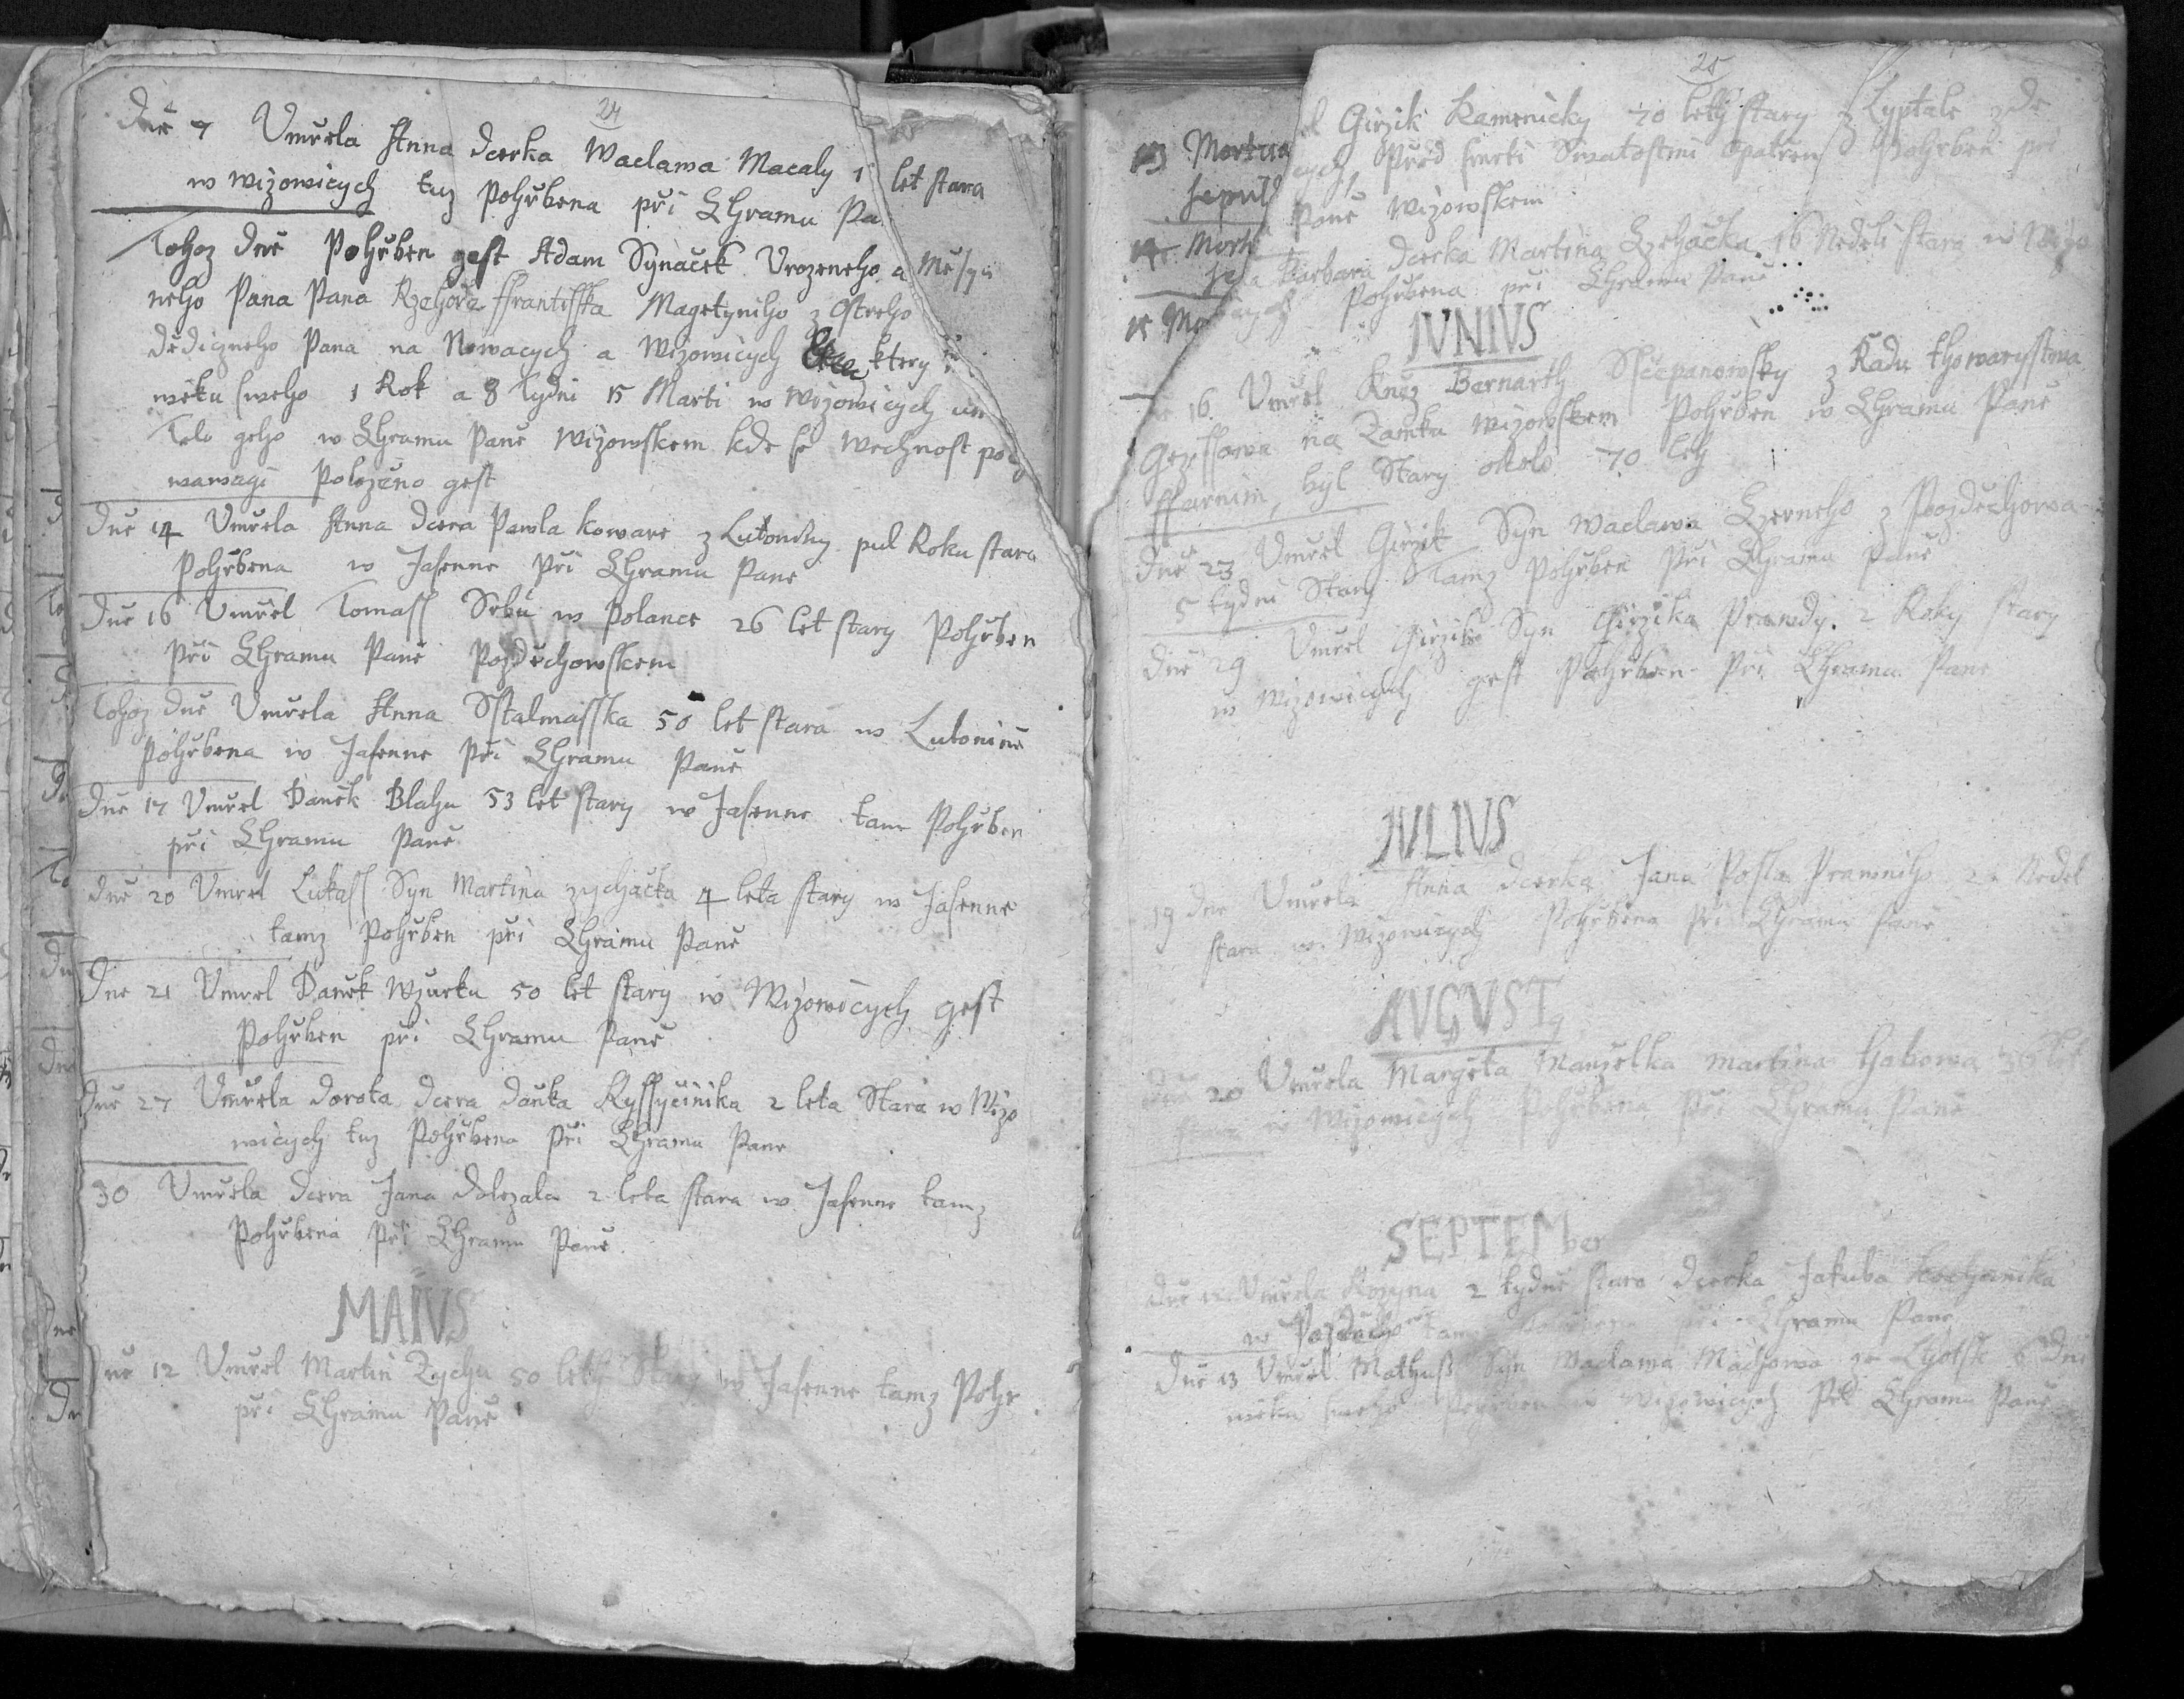 24
Dne 7 Umržela Anna dcerka Waclawa Macaly 1 let stara
w wizowicych tuz Pohržbena při Chramu Pa
Tohoz dne Pohržben gest Adam Synaček Urozeneho a
neho Pana Pana Rzehoře Ffrantisska Magetyniho z Ostreho
dědiczneho Pana na Nowacych a Wizowicych ktery
wěku sweho 1 Rok a 8 tydni 15 Marti w wizowicych um
Telo geho w Chramu Pane Wizowskem kde se wechnost
wawagi Polozeno gest
Dne 14 Umržela Anna dcera Pawla koware z Lutoniny pul Roku stara
Pohržbena w Jasenne při Chramu Pane
Dne 16 Umržel Tomass Srbu w Polance 26 let stary Pohržben
při Chramu Pane Pozděchowskem
Tohoz dne Umržela Anna Sstalmasska 50 let stara w Lutonine
Pohržbena w Jasenne při Chramu Pane
Dne 17 Umržel Daněk Blahu 53 let stary w Jasenne tam Pohržben
při Chramu Pane
Dne 20 Umrzel Lukass Syn Martina zychačka 4 leta stary w Jasenne
tamz Pohržben při Chramu Pane
Dne 21 Umrzel Daněk Wzurku 50 let stary w Wizowicych gest
Pohržben při Chramu Pane
Dne 27 Umržela dorota dcera daňka 2 leta Stara w Wizo
wicych tuz Pohržbena při Chramu Pane
30 Umržela dcera Jana dolezala 2 leta stara w Jasenne tamz
Pohržbena při Chramu Pane
MAIUS
ne 12 Umržel Martin Zychu 50 leth Stary w Jasenne tamz Pohr
při Chramu Pane
25
13 Mortua
Girzik Kamenicky 70 leth stary z Lyptale zde
sepul
Před smrti Swatostmi opatřen Pohržben při
Pane wizowskem
14 Mort
Barbara dcerka Martina 16 Nedeli stara w Wizo
Pohržbena při Chramu Pane
15 Mo
IUNIUS
16 Umržel Kněz Bernarth Sstěpanowsky z Radu thowarysstwa
Gezissowa na Zamku wizowskem Pohržben w Chramu Pane
ffarnim, byl Stary okolo 70 leth
Dne 23 Umržel Girzik Syn Waclawa Czerneho z Pozděchowa
5 tydni Stary Tamz Pohržben Při Chramu Pane
Dne 29 Umržel Girzik Syn Girzika Prawdy 2 Roky stary
w Wizowicych gest Pohržben Při Chramu Pane
IULIUS
19 dne Umržela Anna dcerka Jana Posla Prawniho Nedel
stara w Wizowicych Pohržbena při Chramu Pane
AUGUST9
Dne 20 Umržela Margeta Manzelka martina let
stara w Wizowicych Pohržbena při Chramu Pane
SEPTEMber
Dne Umržela Rozyna 2 tydne stara dcerka Jakuba
w tamz při Chramu Pane
Dne 13 Umržel Mathuss Syn Waclawa 6 dni
wěku sweho Pohržben w Wizowicych Při Chramu Pane